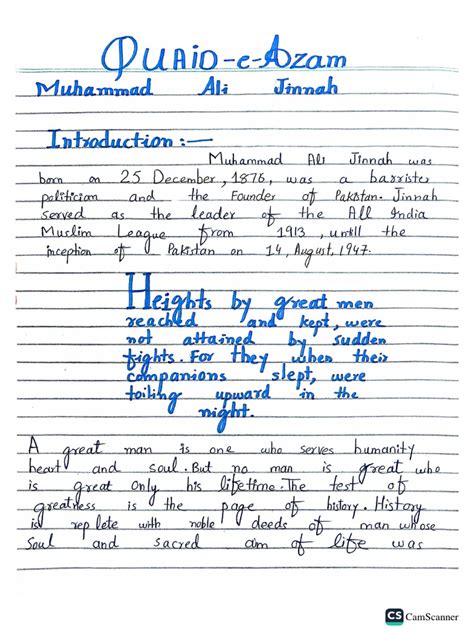 QUAID-e-Azam
Muhammad Ali Jinnah
Introduction :—
Muhammad Ali Jinnah was
born on 25 December, 1876, was a barrister
politician and the Founder of Pakistan. Jinnah
served as the leader of the All India
Muslim League from 1913, untill the
inception of Pakistan on 14, August, 1947.
Heights by great men
reached and kept, were
not attained by sudden
fights. For they when their
companions slept, were
toiling upward in the
night.
A great man is one who serves humanity
heart and soul. But no man is great who
is great Only his lifetime. The test of
greatness is the page of history. History
is replete with noble deeds of man whose
Soul and sacred aim of life was
CS CamScanner